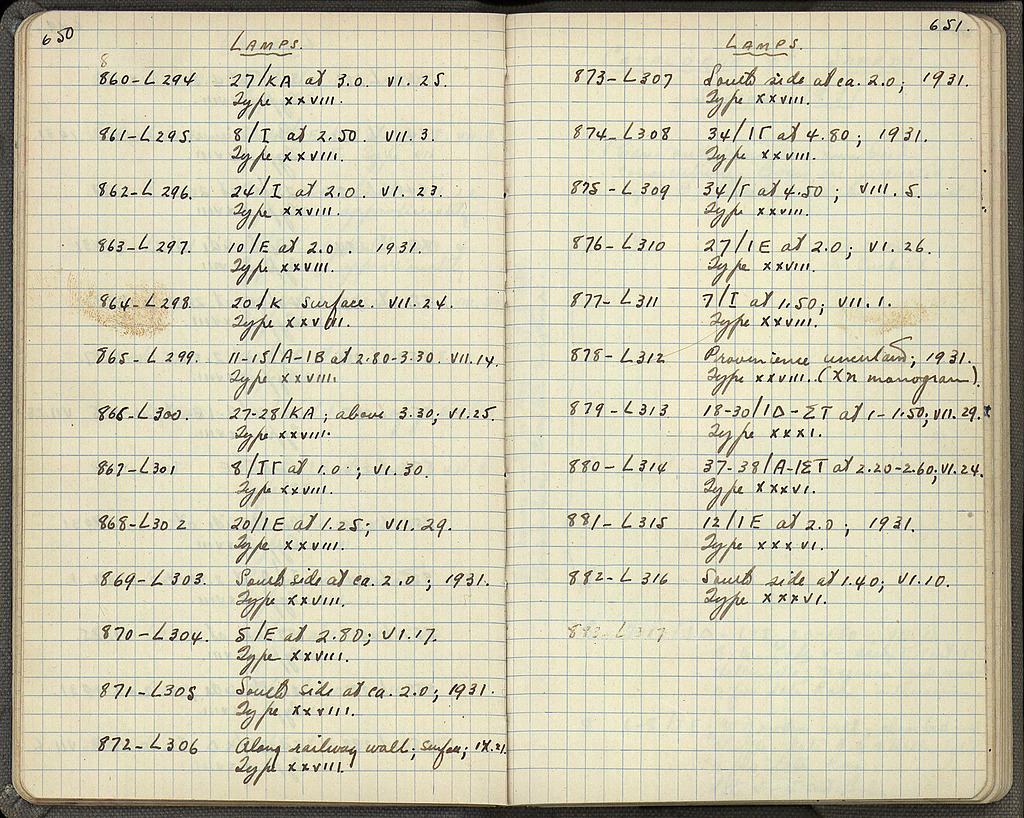 650
LAMPS.
8
860-L294 27/KA at 3.0. VI. 25.
Type XXVIII.
861-L295. 8/I at 2.50. VII. 3.
Type XXVIII.
862-L296. 24/I at 2.0. VI. 23.
Type XXVIII.
863-L297. 10/E at 2.0. 1931.
Type XXVIII.
864-L298. 20/K surface. VII. 24.
Type XXVIII.
865-L299. 11-15/A-IB at 2.80-3.30. VII.14.
Type XXVIII.
866-L300. 27-28/KA; above 3.30; VI.25
Type XXVIII.
867-L301 8/IΓ at 1.0; VI.30.
Type XXVIII.
868-L302 20/IE at 1.25; VII. 29.
Type XXVIII.
869-L303. South side at ca. 2.0; 1931.
Type XXVIII.
870-L304. 5/E at 2.80; VI.17.
Type XXVIII.
871-L305 South side at ca. 2.0; 1931.
Type XXVIII.
872-L306 Along railway wall; surface; IX.21.
Type XXVIII.
651.
LAMPS.
873-L307 South side at ca. 2.0; 1931.
Type XXVIII.
874-L308 34/IΓ at 4.80; 1931.
Type XXVIII.
875-L309 34/Γ at 4.50; VIII. 5.
Type XXVIII.
876-L310 27/IE at 2.0; VI. 26.
Type XXVIII.
877-L311 7/I at 1.50; VII. 1.
Type XXVIII.
878-L312 Provenience uncertain; 1931.
Type XXVIII. (Xn monogram).
879-L313 18-30/IΔ-ΣT at 1-1.50; VII. 29.
Type XXXI.
880-L314 37-38/A-IΣT at 2.20-2.60; VI.24.
Type XXXVI.
881-L315 12/IE at 2.0; 1931.
Type XXXVI.
882-L316 South side at 1.40; VI.10.
Type XXXVI.
883-L317